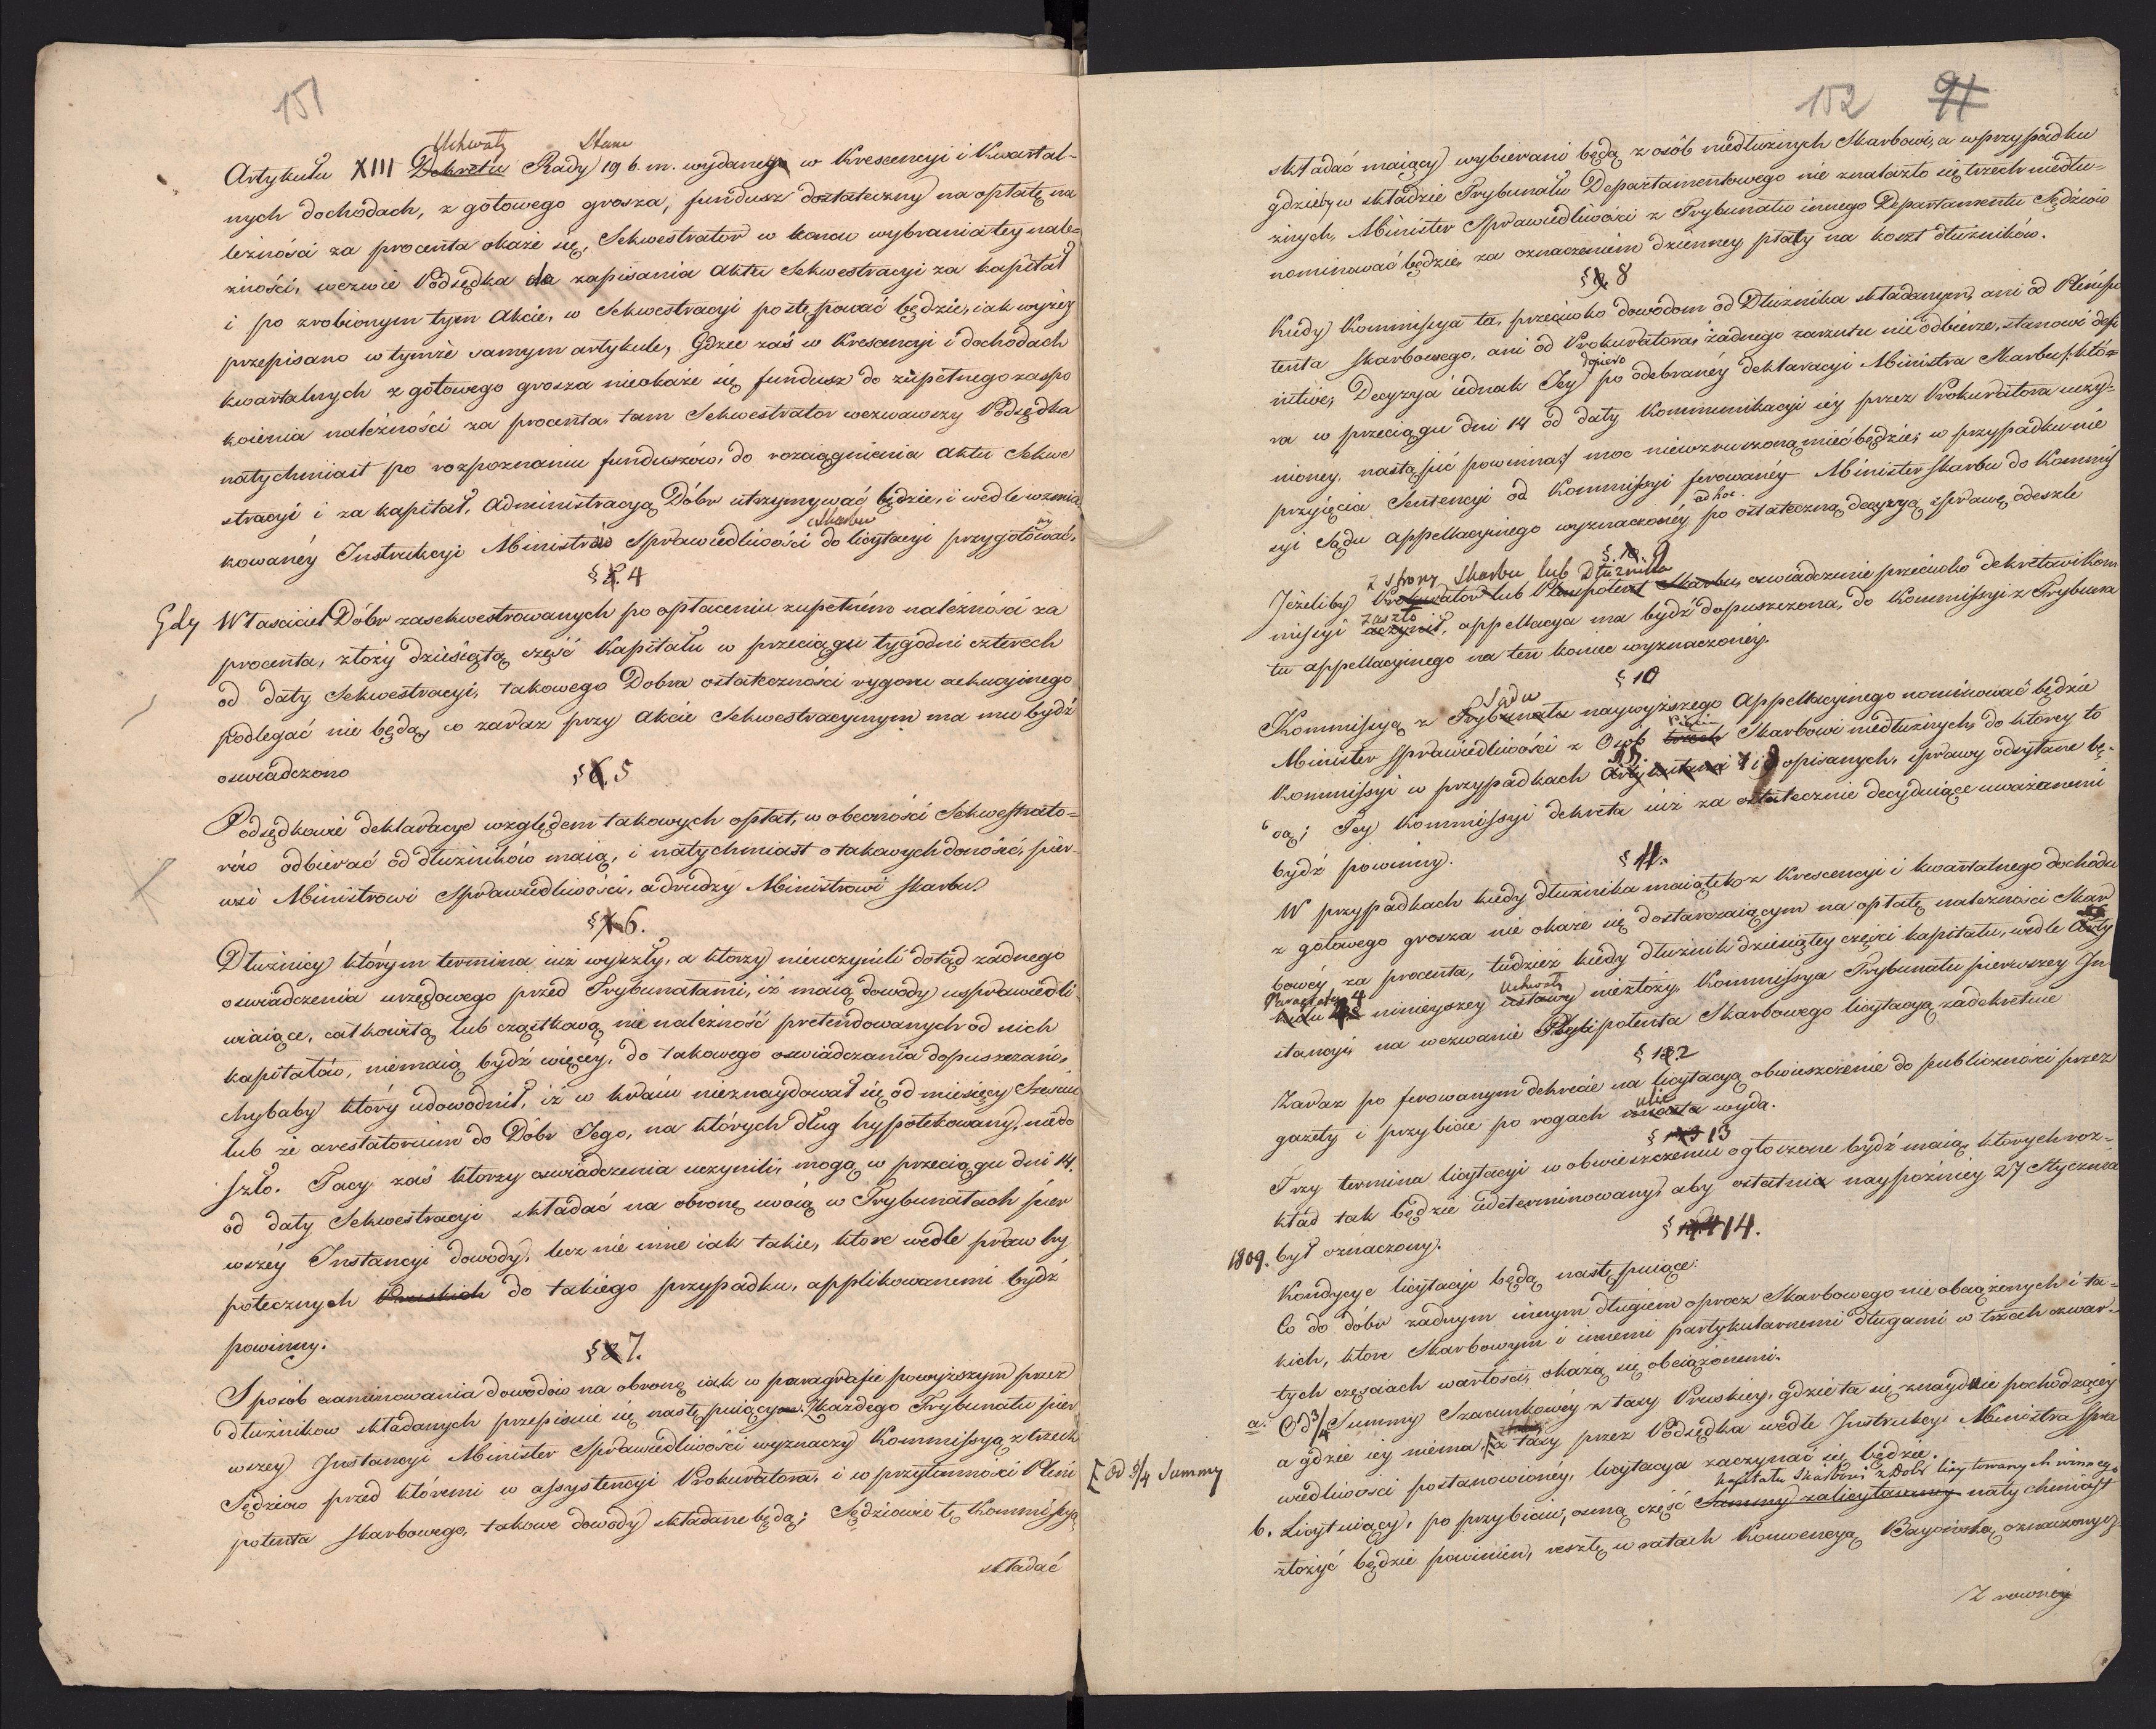 151
Uchwały Stanu
Artykułu XIII Dekretu Rady 19 b. m. wydaney w Krescencyi i Kwartal-
nych dochodach, z gotowego grosza, fundusz dostateczny na opłatę na
leżności za procenta okaże się, Sekwestrator w końcu wybrania tey nale-
żności, wezwie Podsędka do zapisania Aktu Sekwestracyi za kapitał
i po zrobionym tym Akcie, w Sekwestracyi postępować będzie, iak wyżey
przepisano w tymże samym artykule, Gdzie zaś w Krescencyi i dochodach
kwartalnych z gotowego grosza nieokaże się fundusz do zupełnego zaspo
koienia należności za procenta, tam Sekwestrator wezwawszy Podsędka
natychmiast po rozpoznaniu funduszów, do rozciągnienia Aktu Sekwe
stracyi i za kapitał, Administracyą Dóbr utrzymywać będzie, i wedle wzmian
Skarbu
kowanéy Instrukcyi Ministrów Sprawiedliwości do licytacyi przygotować.
§ 4
Gdy Właściciel Dóbr zasekwestrowanych po opłaceniu zupełném należności za
procenta, złoży dziesiątą część Kapitału w przeciągu tygodni czterech
od daty Sekwestracyi, takowego Dobra ostateczności rygoru exekucyinego
podlegać nie będą, co zaraz przy Akcie Sekwestracyinym ma mu bydź
oświadczono
§ 6. 5
Podsędkowie deklaracye względem takowych opłat, w obecności Sekwestrato-
rów odbierać od dłużników maią, i natychmiast o takowych donosić, pier-
wsi Ministrowi Sprawiedliwości, a drudzy Ministrowi Skarbu.
§ 6.
Dłużnicy którym termina iuż wyszły, a którzy nieuczynili dotąd żadnego
oświadczenia urzędowego przed Trybunałami, iż maią dowody usprawiedli-
wiaiące, całkowitą lub cząstkową nienależność pretendowanych od nich
kapitałów, niemaią bydź więcéy, do takowego oświadczania dopuszczani,
chybaby który udowodnił, iż w kraiu nieznaydował się od miesięcy Sześciu
lub że arestatorium do Dóbr Jego, na których dług hypotekowany, niedo
szło. Tacy zaś którzy oświadczenia uczynili, mogą w przeciągu dni 14.
od daty Sekwestracyi składać na obronę swoią w Trybunałach pier
wszéy Instancyi dowody, lecz nie inne iak takie, które wedle praw hy
potecznych Pruskich do takiego przypadku, applikowanemi bydź
powinny.
§ 8 7.
Sposób examinowania dowodów na obronę iak w paragrafie powyższym przez
dłużników składanych przepisuie się następuiący. Z każdego Trybunału pier
wszey Instancyi Minister Sprawiedliwości wyznaczy Kommissyą z trzech
Sędziów przed któremi w assystencyi Prokuratora, i w przytomności Pleni
potenta skarbowego, takowe dowody składane będą; Sędziowie tę Kommissyą
składać
152 91
składać maiący wybierani będą z osób niedłużnych Skarbowi, a w przypadku
gdzieby w składzie Trybunału Departamentowego nie znalazło się trzech niedłu-
żnych, Minister Sprawiedliwości z Trybunału innego Departamentu Sędziów
nominować będzie, za oznaczeniem dzienney płaty na koszt dłużników.
§ 9. 8
Kiedy Kommissya ta, przeciwko dowodom od Dłużnika składanym, ani od Plenipo
tenta skarbowego, ani od Prokuratora, żadnego zarzutu nie odbierze, stanowi defi
dopiero
nitivè, Decyzya iednak Jey po odebranéy deklaracyi Ministra Skarbu /: któ-
ra w przeciągu dni 14 od daty Kommunikacyi iéy przez Prokuratora uczy-
nioney, nastąpić powinna:/ moc niewzruszoną mieć będzie; w przypadku nie
przyięcia Sentencyi od Kommissyi ferowaney Minister Skarbu do Kommis
ad hoc.
syi Sądu appellacyinego wyznaczonéy po ostateczną decyzyą sprawę odeszle
§. 10. 9
z strony Skarbu lub Dłużnika
Jeżeliby Prokurator lub Plenipotent Skarbu, oświadczenie przeciwko dekretowi Kom
zaszło
missyi uczynił, appellacya ma bydź dopuszczona, do Kommissyi z Trybuna
łu appellacyinego na ten koniec wyznaczoney.
§ 10
Sądu
Kommissyą z Trybunału naywyższego Appellacyinego nominować będzie
pięciu
Minister Sprawiedliwości z Osób trzech Skarbowi niedłużnych, do którey to
Kommissyi w przypadkach Artykułami 8 i 9 opisanych, sprawy odsyłane bę-
dą; Tey Kommissyi dekreta iuż za ostatecznie decyduiące uważanemi
bydź powinny.
§ 11.
W przypadkach kiedy dłużnika maiątek z Krescencyi i kwartalnego dochodu
z gotowego grosza nie okaże się dostarczaiącym na opłatę należności Skar
bowéy za procenta, tudzież kiedy dłużnik dziesiątey części kapitału, wedle Arty
Paragrafu 4 Uchwały
kułu ninieyszey ustawy niezłoży, Kommissya Trybunału pierwszey In
stancyi, na wezwanie Plenipotenta Skarbowego licytacyą zadekretuie
§ 12
Zaraz po ferowanym dekrecie na licytacyą obwieszczenie do publiczności przez
ulic
gazety i przybicie po rogach miasta wyda.
§ 13
Trzy termina licytacyi w obwieszczeniu ogłoszone bydź maią, których roz-
kład tak będzie udeterminowany, aby ostatni naypóźniey 27 Stycznia
1809. był oznaczony.
§ 14.
Kondycye licytacyi będą następuiące:
Co do dóbr żadnym innym długiem oprócz Skarbowego nie obciążonych i ta-
kich, które Skarbowym i innemi partykularnemi długami w trzech czwar-
tych częściach wartości, okażą się obciążonemi.
a. Od 3/4 Summy Szacunkowéy z taxy Pruskiey, gdzie ta się znayduie pochodzącéy
a gdzie iey niema, [z taxy przez Podsędka wedle Instrukcyi Ministra Spra
[od 3/4 Summy
wiedliwości postanowionéy, licytacya zaczynać się będzie.
kapitału Skarbowi z Dóbr licytowanych winnego,
b. Licytuiący, po przybiciu, ósmą część Summy zalicytowaney natychmiast
złożyć będzie powinien, resztę w ratach Konwencyą Bayońską oznaczonych
Z rowney